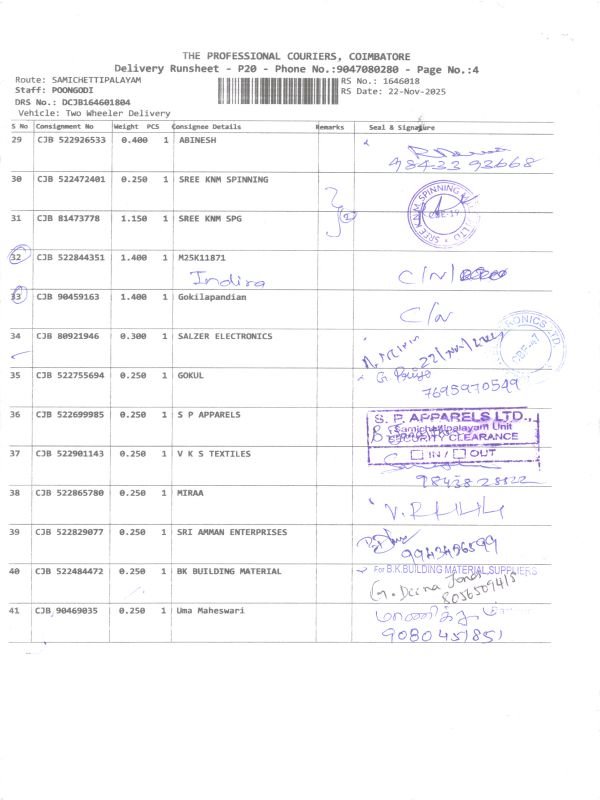 THE PROFESSIONAL COURIERS, COIMBATORE
Delivery Runsheet - P20 - Phone No.:9047080280 - Page No.:4
Route: SAMICHETTIPALAYAM
RS No.: 1646018
Staff: POONGODI
RS Date: 22-Nov-2025
DRS No.: DCJB164601804
Vehicle: Two Wheeler Delivery
S No Consignment No Weight PCS Consignee Details Remarks Seal & Signature
29 CJB 522926533 0.400 1 ABINESH
98433 93668
30 CJB 522472401 0.250 1 SREE KNM SPINNING
SREE KNM SPINNING
31 CJB 81473778 1.150 1 SREE KNM SPG
2
32 CJB 522844351 1.400 1 M25K11871
Indira C/N/
33 CJB 90459163 1.400 1 Gokilapandian
C/N
34 CJB 80921946 0.300 1 SALZER ELECTRONICS
35 CJB 522755694 0.250 1 GOKUL
7695970549
36 CJB 522699985 0.250 1 S P APPARELS
S. P. APPARELS LTD.,
Samichettipalayam Unit
SECURITY CLEARANCE
IN / OUT
37 CJB 522901143 0.250 1 V K S TEXTILES
38 CJB 522865780 0.250 1 MIRAA
39 CJB 522829077 0.250 1 SRI AMMAN ENTERPRISES
40 CJB 522484472 0.250 1 BK BUILDING MATERIAL
For B.K.BUILDING MATERIAL SUPPLIERS
41 CJB 90469035 0.250 1 Uma Maheswari
9080451851